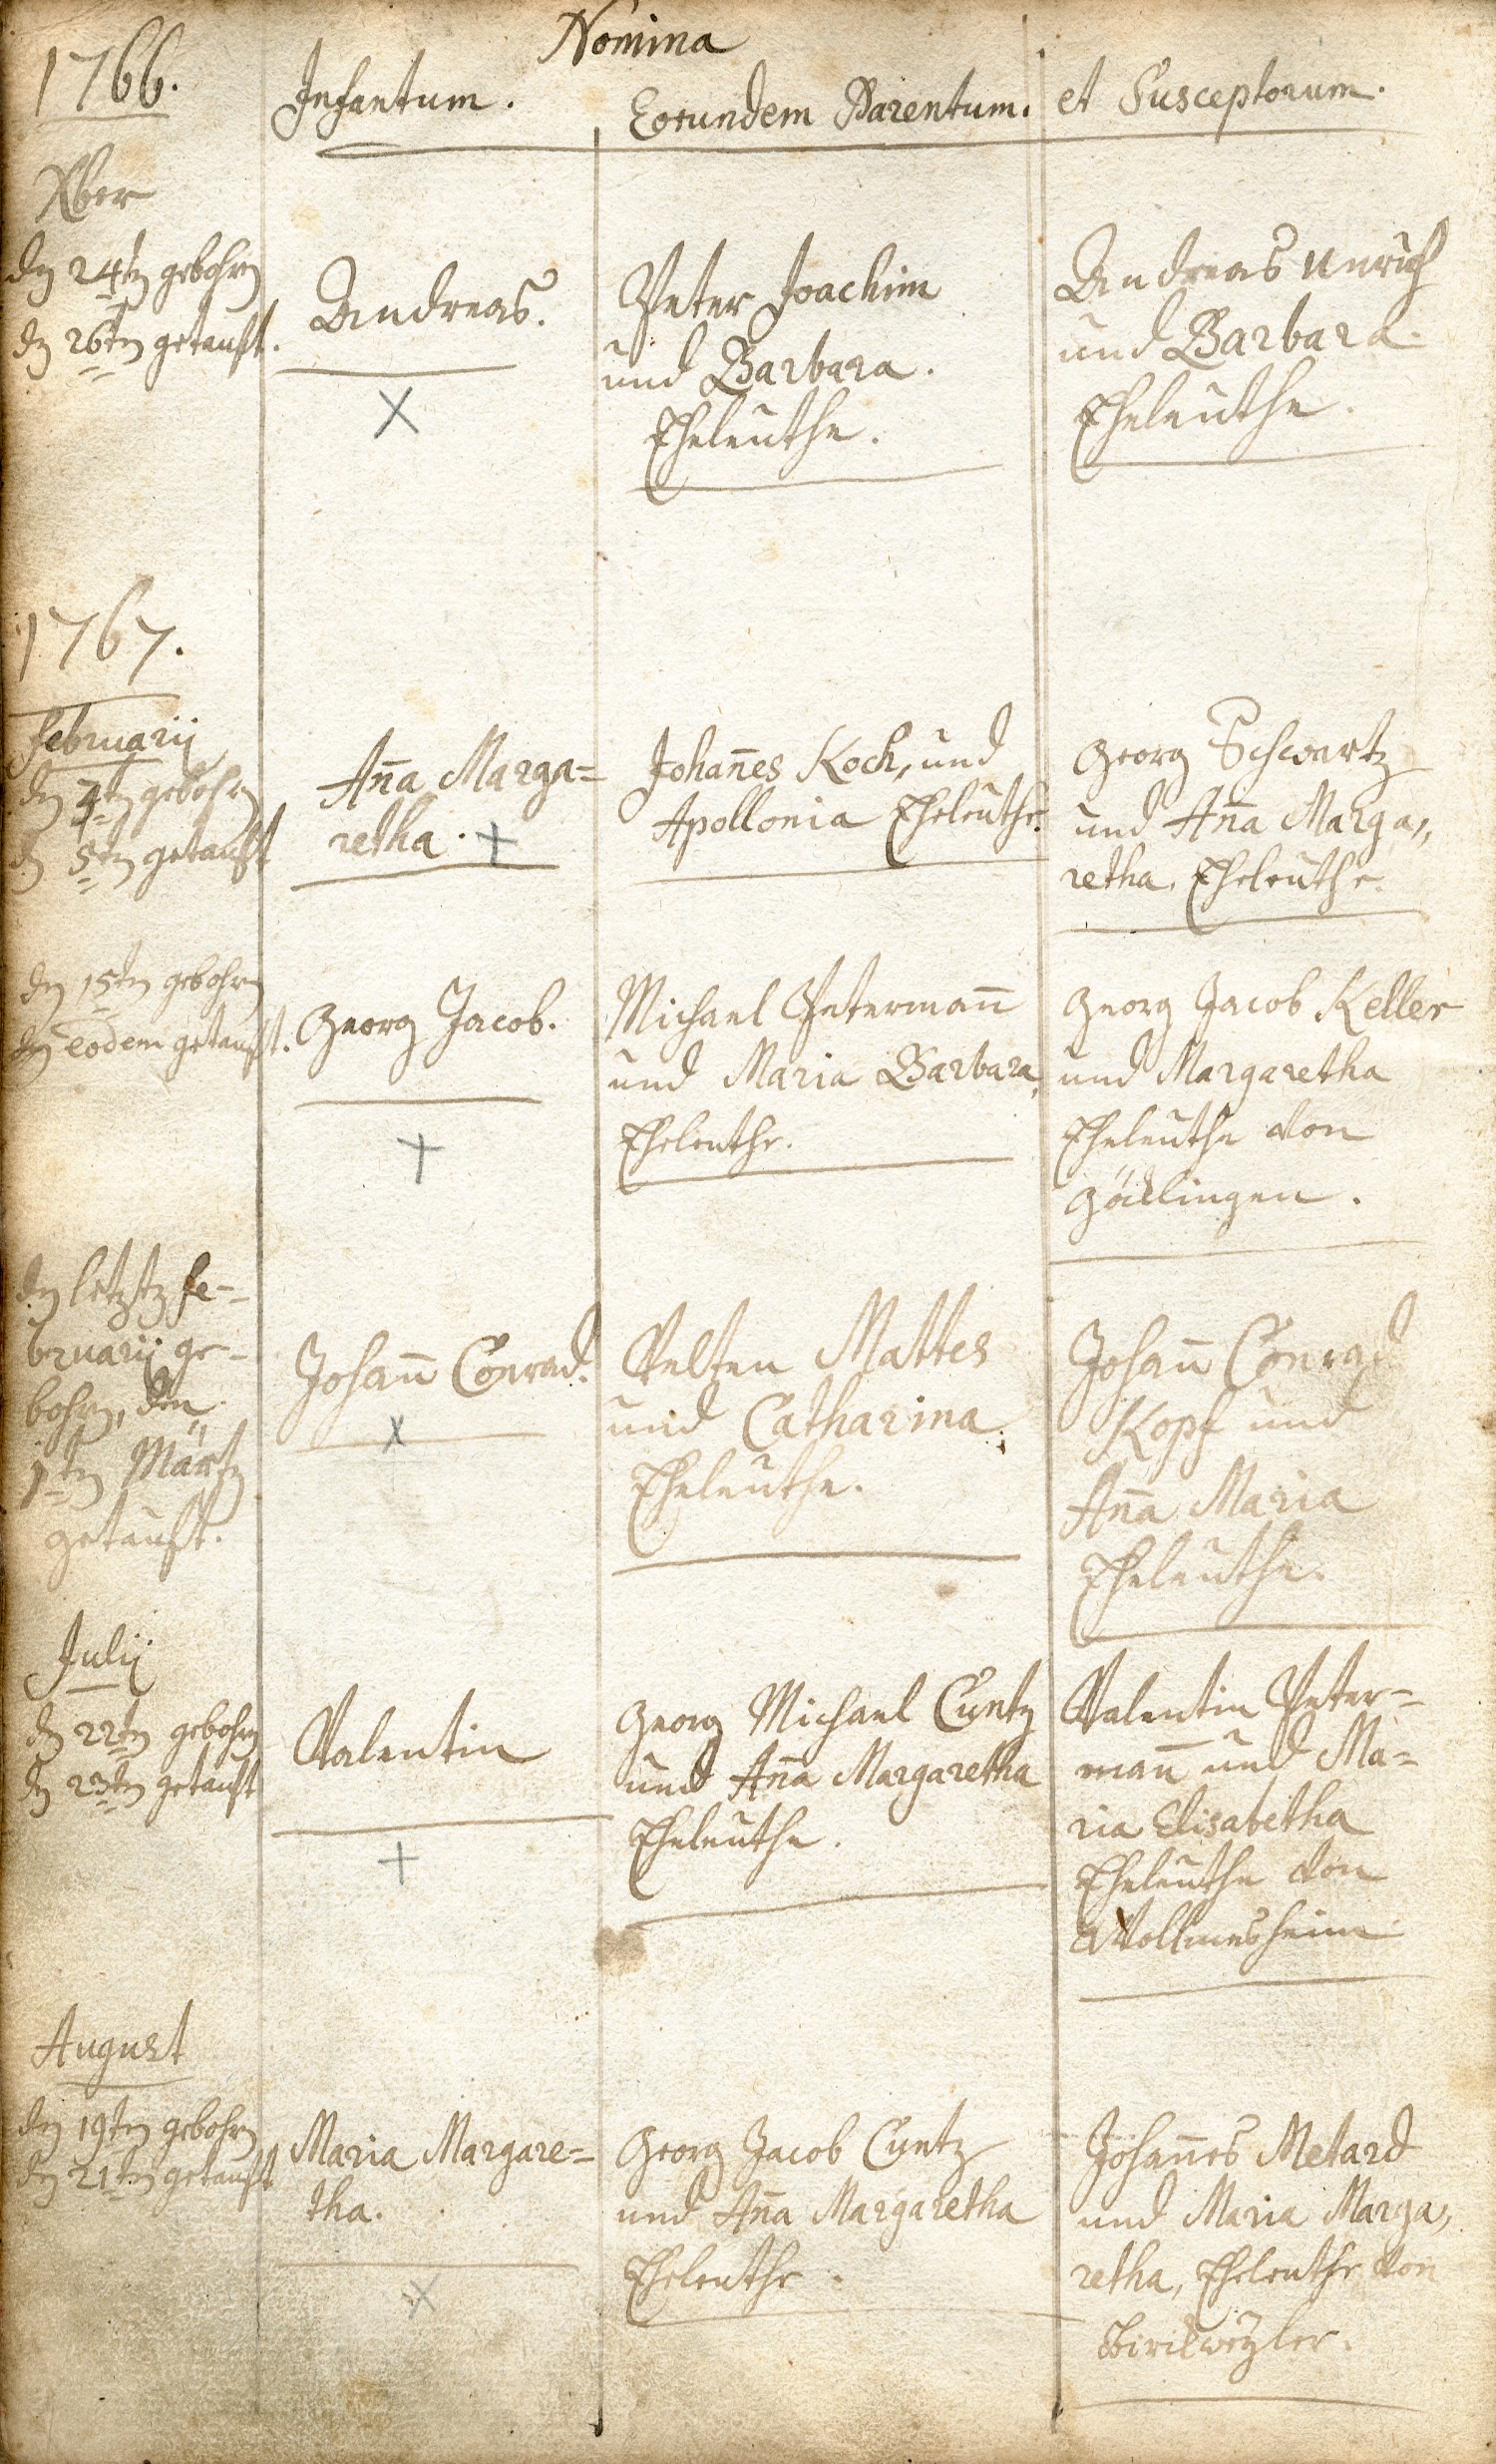 Nomina
1766.
Infantum.
Eorundem Parentum.
et Susceptorum.
Xber
den 24ten gebohren
den 26ten getauft.
Andreas.
Peter Joachim
und Barbara.
Eheleuthe.
Andreas Unrich
und Barbara.
Eheleuthe.
1767.
Februarij
den 4ten gebohren
den 5ten getauft
Ana Marga=
retha.
Johanes Koch, und
Apollonia Eheleuthe.
Georg Schwartz
und Ana Marga,,
retha. Eheleuthe.
den 15ten gebohren
den eodem getauft.
Georg Jacob.
Michael Petermann
und Maria Barbara,
Eheleuthe.
Georg Jacob Keller
und Margaretha
Eheleuthe von
Göcklingen.
den letzten Fe-
bruarij ge-
bohren, den
1ten Märtz
getauft.
Johann Conrad.
Velten Mattes
und Catharina
Eheleuthe.
Johann Conrad
Kopf und
Ana Maria
Eheleuthe.
Julij
den 22ten gebohren
den 23ten getauft
Valentin
Georg Michael Cuntz
und Ana Margaretha
Eheleuthe.
Valentin Peter=
mann und Ma=
ria Elisabetha
Eheleuthe von
Wollmesheim
August
den 19ten gebohren
den 21ten getauft
Maria Margare=
tha.
Georg Jacob Cuntz
und Ana Margaretha
Eheleuthe.
Johannes Metard
und Maria Marga,
retha, Eheleuthe von
Birckweyler.